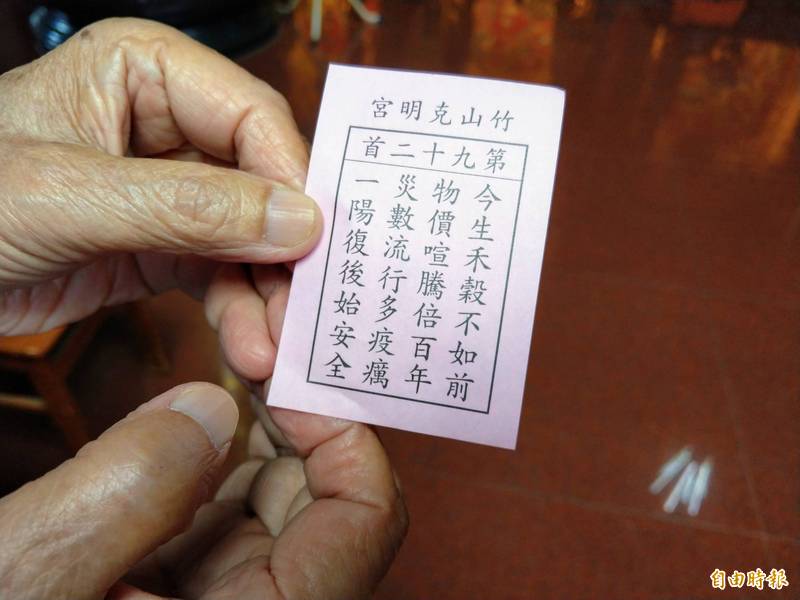 竹山克明宮
第九十二首
今生禾穀不如前
物價喧騰倍百年
災數流行多疫癘
一陽復後始安全
自由時報